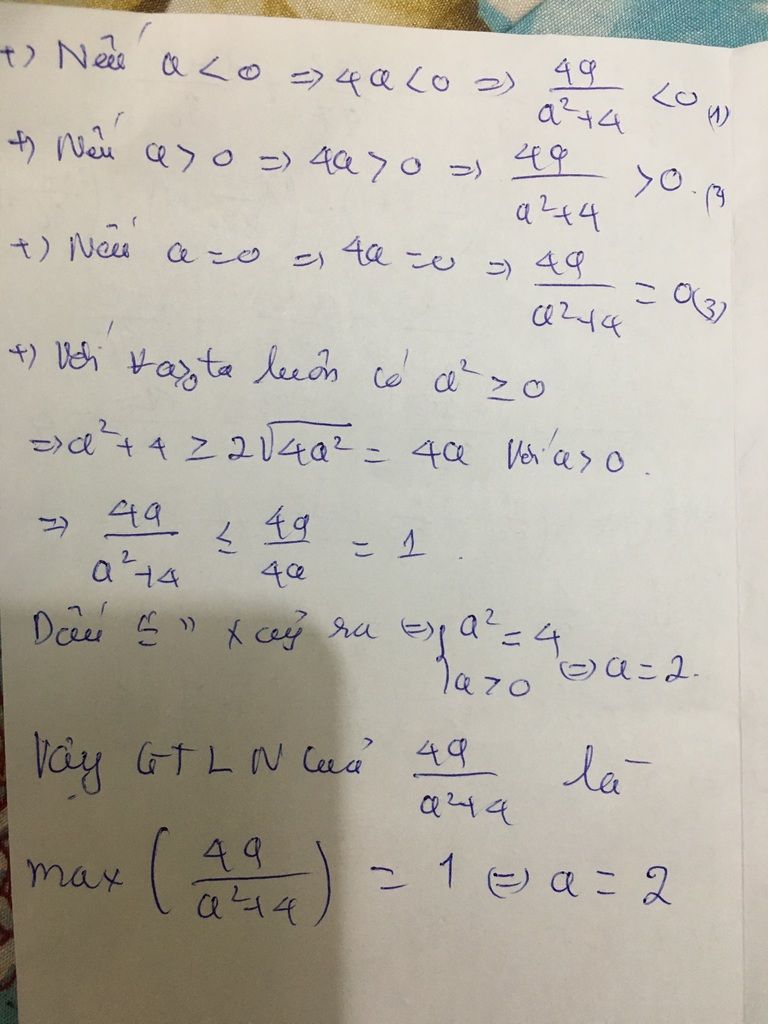 +) Nếu a < 0 => 4a < 0 => 4a / (a² + 4) < 0 (1)
+) Nếu a > 0 => 4a > 0 => 4a / (a² + 4) > 0. (2)
+) Nếu a = 0 => 4a = 0 => 4a / (a² + 4) = 0 (3)
+) Với ∀a>0 ta luôn có a² ≥ 0
=> a² + 4 ≥ 2√(4a²) = 4a Với a > 0.
=> 4a / (a² + 4) ≤ 4a / 4a = 1.
Dấu "=" xảy ra <=> { a² = 4 ; a > 0 <=> a = 2.
Vậy GTLN của 4a / (a² + 4) là
max (4a / (a² + 4)) = 1 <=> a = 2